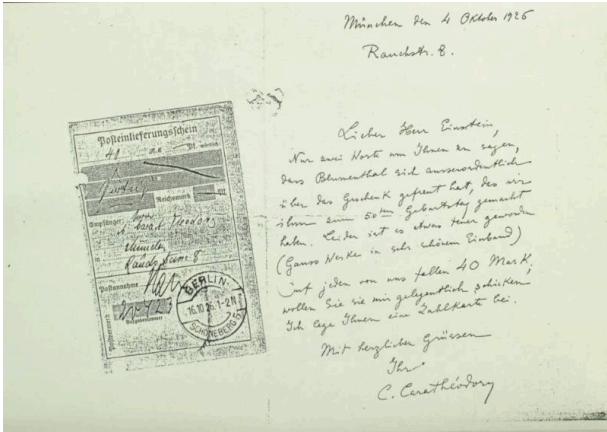 München den 4 Oktober 1926
Rauchstr. 8.
Lieber Herr Einstein,
Nur zwei Worte um Ihnen zu sagen,
dass Blumenthal sich ausserordentlich
über das Geschenk gefreut hat, das wir
ihm zum 50ten Geburtstag gemacht
haben. Leider ist es etwas teuer geworden
(Gauss Werke in sehr schönem Einband)
Auf jeden von uns fallen 40 Mark.
wollen Sie sie mir gelegentlich schicken,
Ich lege Ihnen eine Zahlkarte bei.
Mit herzlichen Grüssen
Ihr
C. Carathéodory
Posteinlieferungsschein
40
Reichsmark
Empfänger:
München
Rauchstrasse 8
Postannahme
BERLIN-
16.10.26.1-2N
SCHÖNEBERG